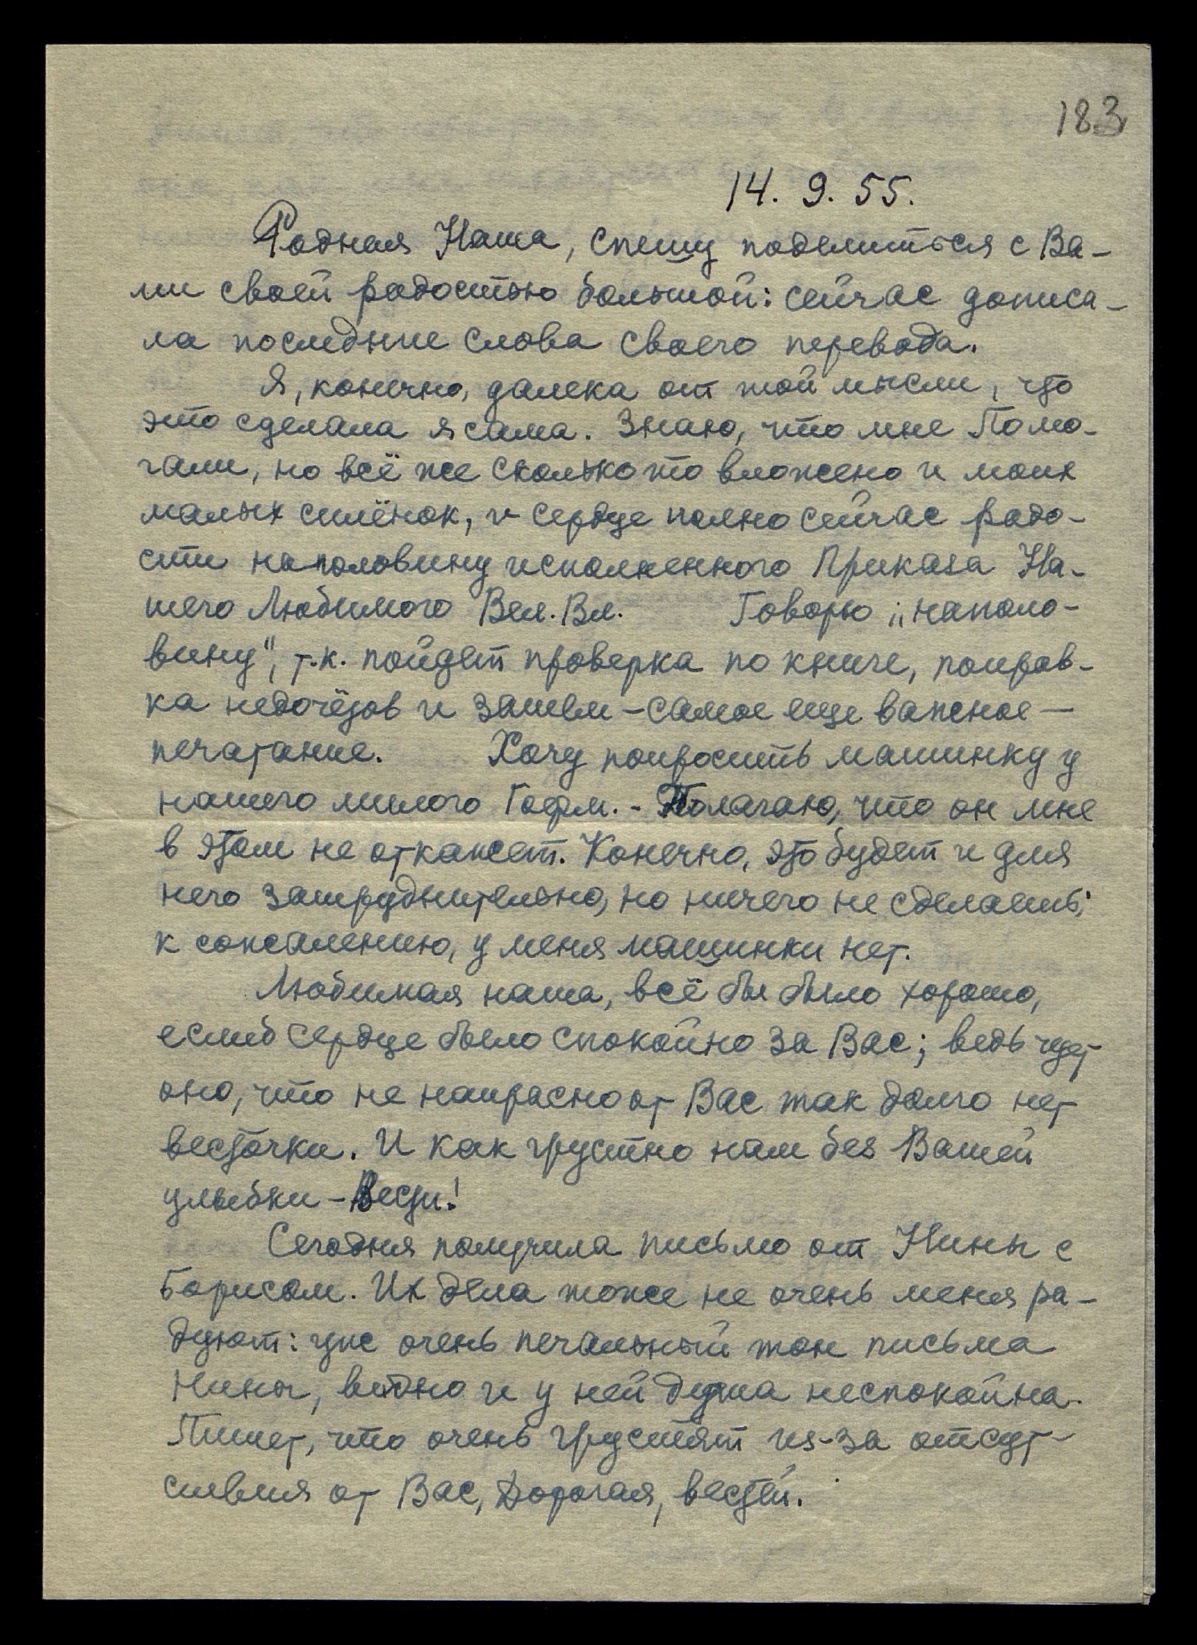 183
14. 9. 55.
Родная Наша, спешу поделиться с Ва-
ми своей радостью большой: сейчас дописа-
ла последние слова своего перевода.
Я, конечно, далека от той мысли, что
это сделала я сама. Знаю, что мне Помо-
гали, но всё же сколько то вложено и моих
малых силёнок, и сердце полно сейчас радо-
сти наполовину исполненного Приказа На-
шего Любимого Вел. Вл. Говорю „наполо-
вину", т.к. пойдет проверка по книге, поправ-
ка недочётов и затем – самое еще важное –
печатание. Хочу попросить машинку у
нашего милого Гофм. - Полагаю, что он мне
в этом не откажет. Конечно, это будет и для
него затруднительно, но ничего не сделаешь;
к сожалению, у меня машинки нет.
Любимая наша, всё бы было хорошо,
если б сердце было спокойно за Вас; ведь чует
оно, что не напрасно от Вас так долго нет
весточки. И как грустно нам без Вашей
улыбки – Вести!
Сегодня получила письмо от Нины с
Борисом. Их дела тоже не очень меня ра-
дуют: уж очень печальный тон письма
Нины, видно и у ней душа неспокойна.
Пишет, что очень грустят из-за отсут-
ствия от Вас, Дорогая, вестей.